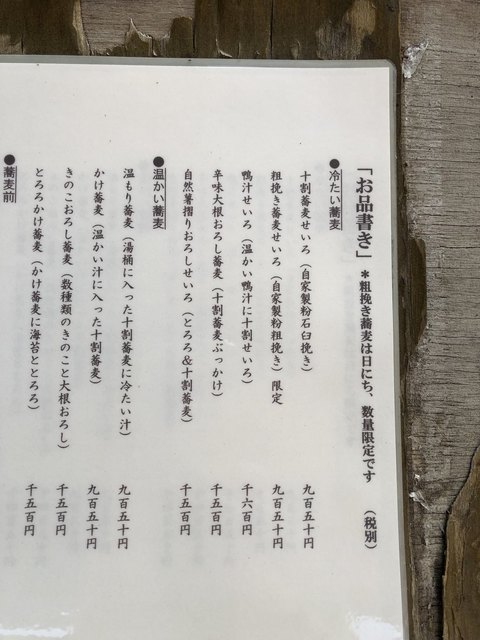 「お品書き」 *粗挽き蕎麦は日にち、数量限定です (税別)
●冷たい蕎麦
十割蕎麦せいろ(自家製粉石臼挽き) 九百五十円
粗挽き蕎麦せいろ(自家製粉粗挽き)限定 九百五十円
鴨汁せいろ(温かい鴨汁に十割せいろ) 千六百円
辛味大根おろし蕎麦(十割蕎麦ぶっかけ) 千五百円
自然薯摺りおろしせいろ(とろろ&十割蕎麦) 千五百円
●温かい蕎麦
温もり蕎麦(湯桶に入った十割蕎麦に冷たい汁) 九百五十円
かけ蕎麦(温かい汁に入った十割蕎麦) 九百五十円
きのこおろし蕎麦(数種類のきのこと大根おろし) 千五百円
とろろかけ蕎麦(かけ蕎麦に海苔ととろろ) 千五百円
●蕎麦前